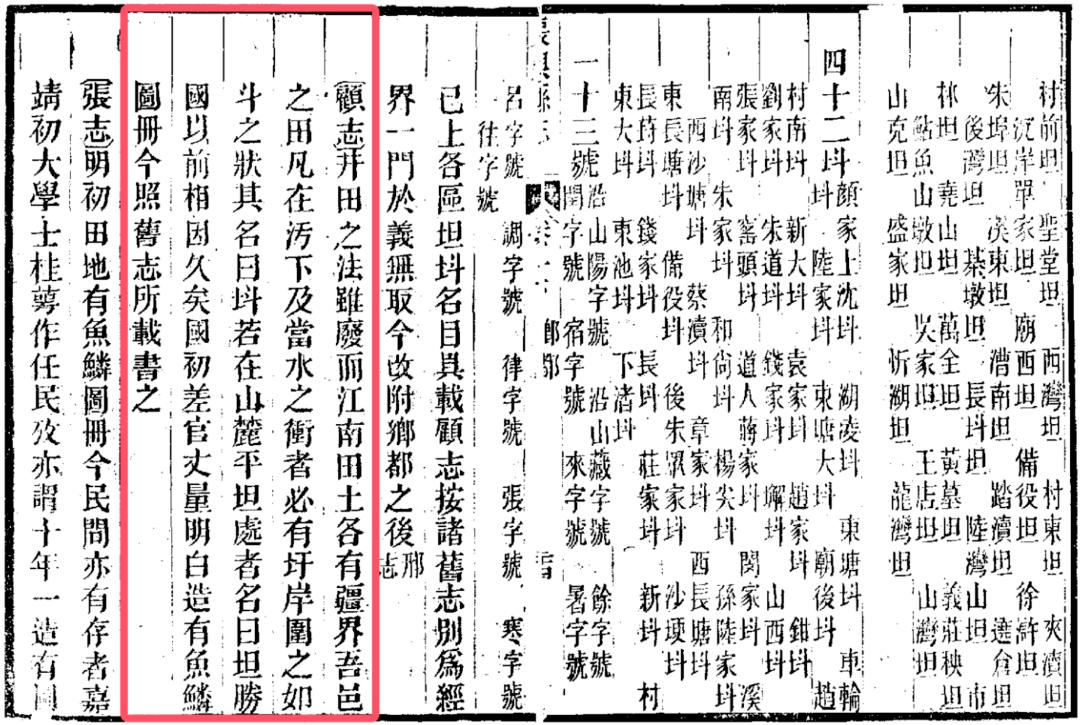 村前坦 聖堂坦 西灣坦 村東坦 夾瀆坦
沉岸單家坦 廟西坦 備役坦 徐滸坦
朱埠坦 溪東坦 漕南坦 踏瀆坦 倉坦
後灣坦 墩坦 長抖坦 陸灣山坦 市
林坦 堯山坦 萬全坦 黃墓坦 義莊秧坦
鮎魚山墩坦 吳家坦 王店坦 山灣坦
山克坦 盛家坦 忻湖坦 龍灣坦
四十二抖 顏家上沈抖 湖凌抖 東塘抖 車輪
抖 陸家抖 東塘大抖 廟後抖 趙
村南抖 新大抖 袁家抖 趙家抖 鉗抖
劉家抖 朱道抖 錢家抖 懈抖 山西抖
張家抖 窰頭抖 道人蔣家抖 閔家抖 溪
南抖 朱家抖 和尚抖 楊尖抖 孫陸家抖
西沙塘抖 蔡瀆抖 章家抖 西長塘抖
東長塘抖 備役抖 後朱家抖 沙堧抖
長葑抖 錢家抖 長抖 莊家抖 新抖 村
東大抖 東池抖 下渚抖
一十三號 沿山陽字號 沿山藏字號 餘字號
閏字號 宿字號 來字號 暑字號
長興縣志 卷一 鄉都
呂字號 調字號 律字號 張字號 寒字號
往字號
已上各區坦抖名目具載顧志按諸舊志別爲經
界一門於義無取今改附鄉都之後邢志
顧志井田之法雖廢而江南田土各有疆界吾邑
之田凡在汚下及當水之衝者必有圩岸圍之如
斗之狀其名曰抖若在山麓平坦處者名曰坦勝
國以前相因久矣國初差官丈量明白造有魚鱗
圖冊今照舊志所載書之
張志明初田地有魚鱗圖冊今民間亦有存者嘉
靖初大學士桂萼作任民攷亦謂十年一造有圖